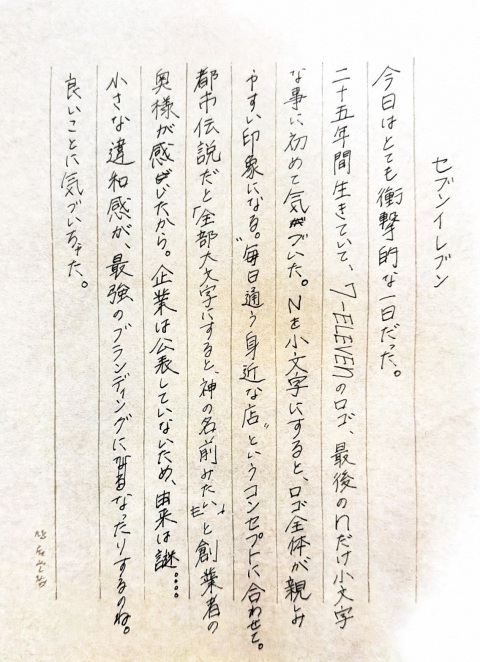 セブンイレブン
今日はとても衝撃的な一日だった。
二十五年間生きていて、7-ELEVEnのロゴ、最後のnだけ小文字
な事に初めて気づいた。Nを小文字にすると、ロゴ全体が親しみ
やすい印象になる。〝毎日通う身近な店〟というコンセプトに合わせて。
都市伝説だと「全部大文字にすると、神の名前みたいと創業者の
奥様が感じたから。企業は公表していないため、由来は謎‥‥
小さな違和感が、最強のブランディングになったりするのね。
良いことに気づいちゃった。